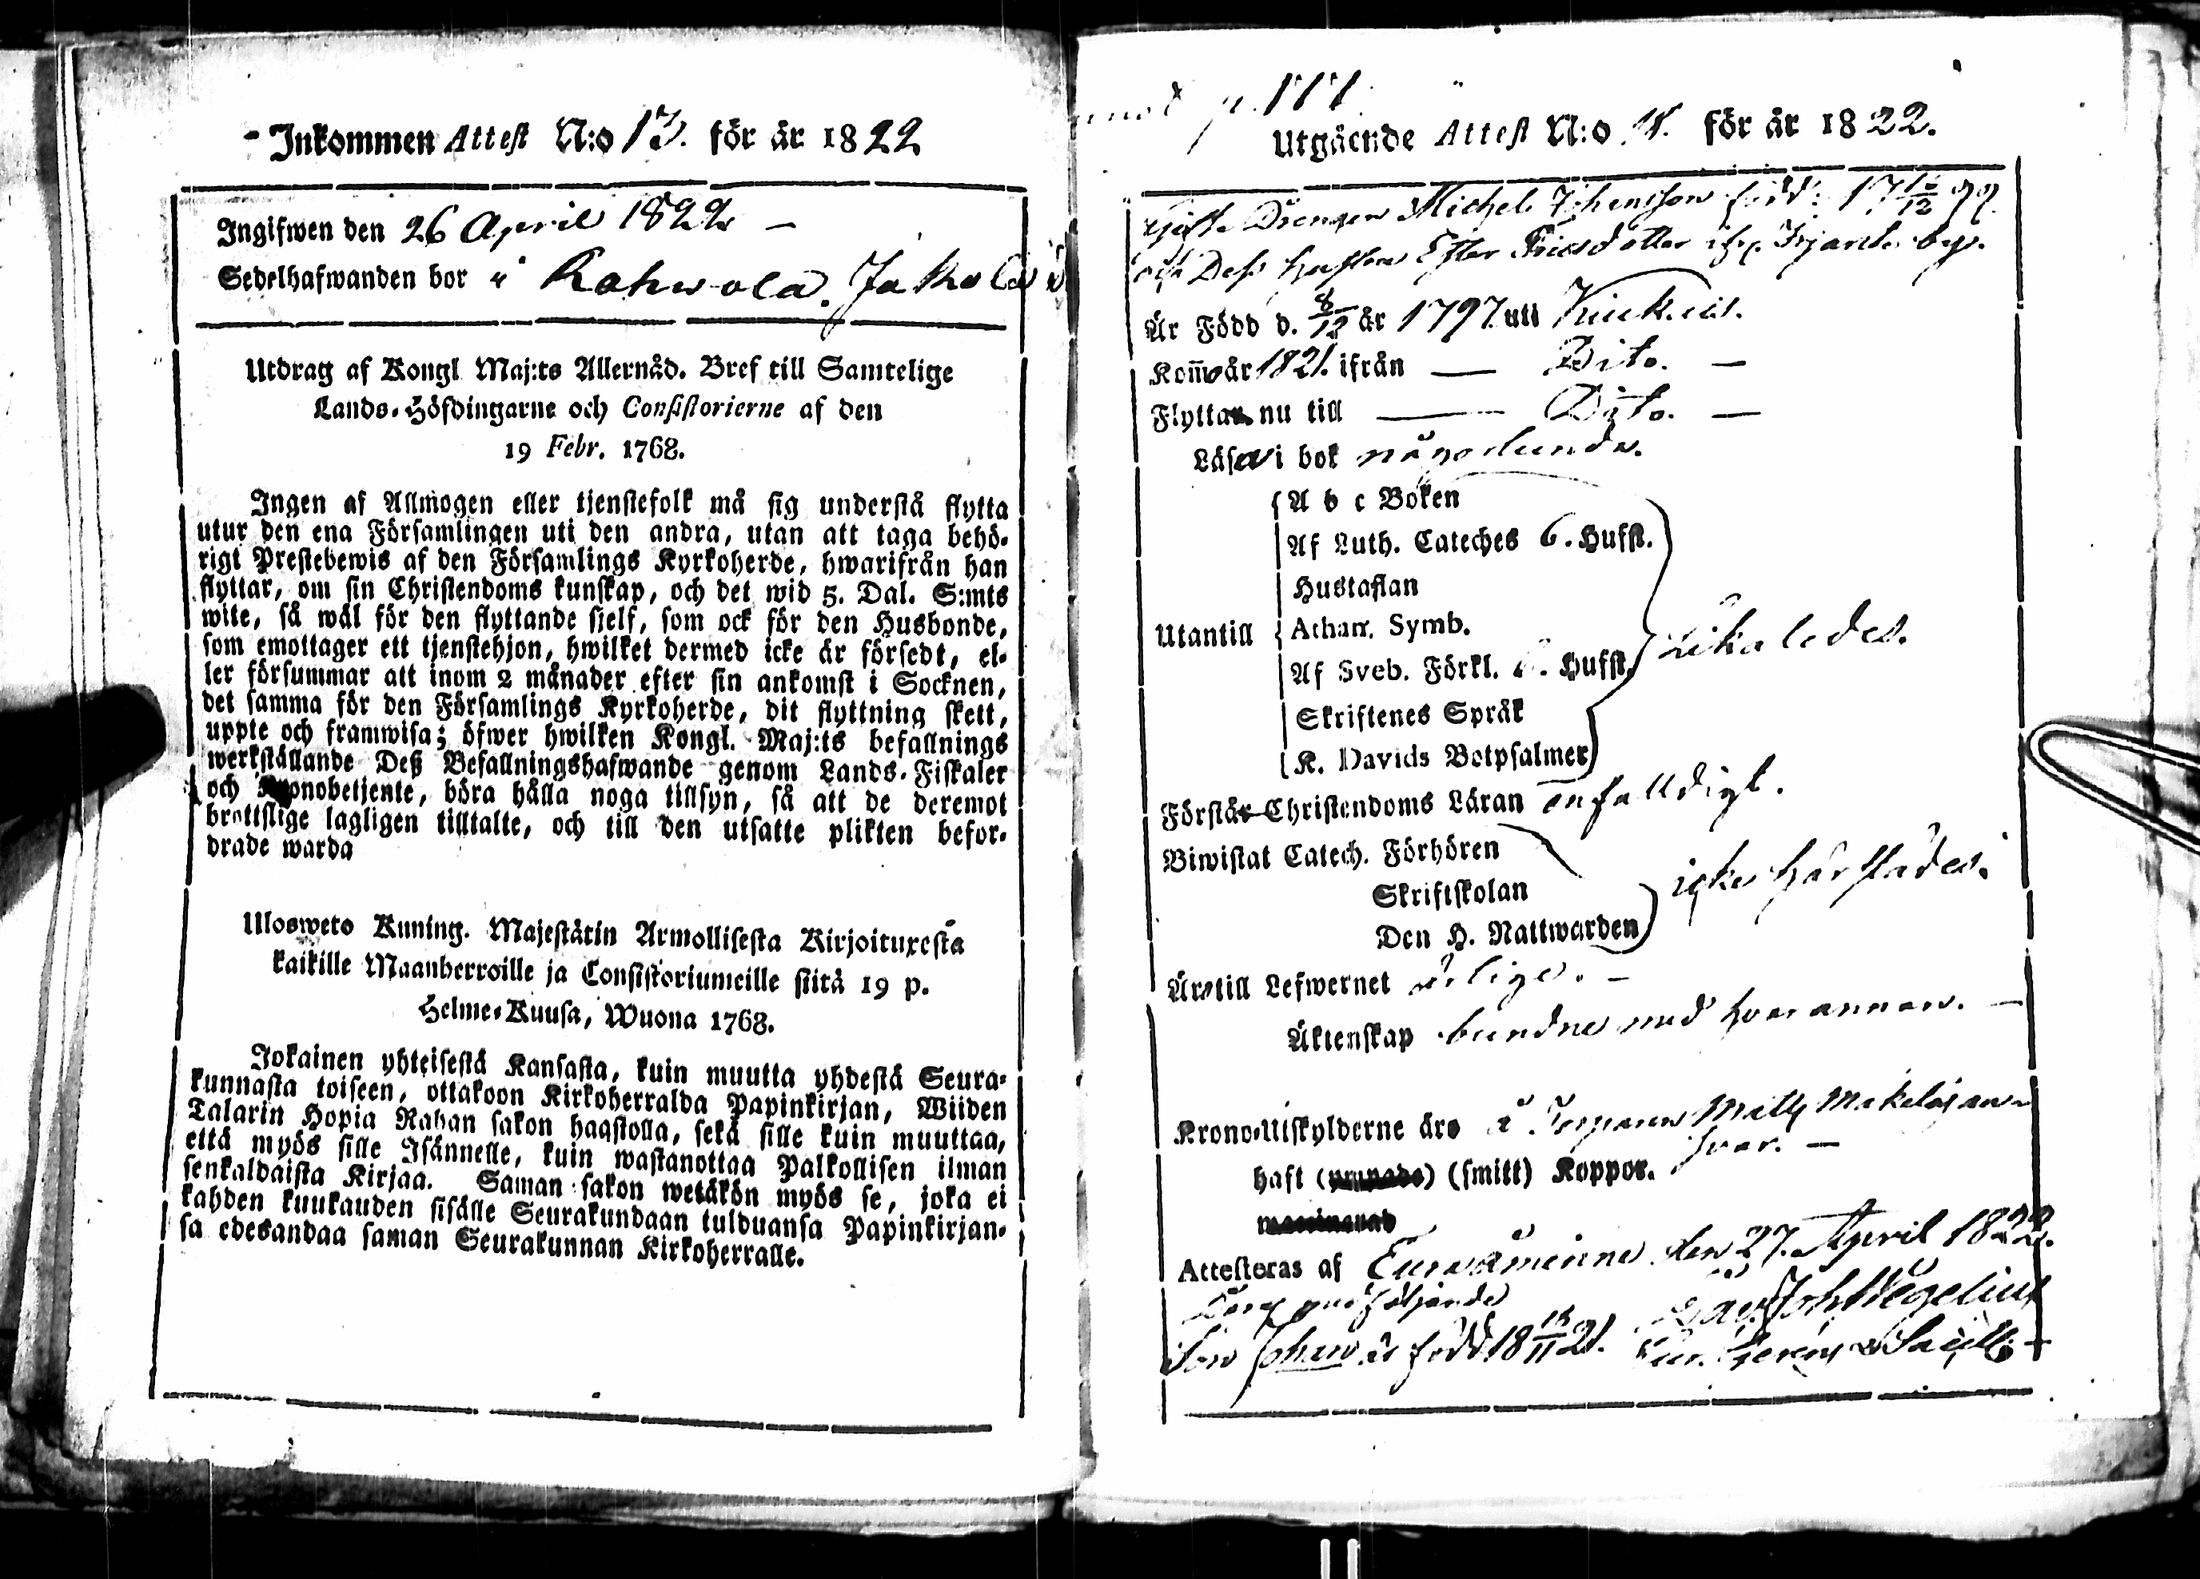 Inkommen Attest N:o 13. för år 1822
Ingifwen den 26 April 1822 –
Sedelhafwanden bor i Rahwola. Jakola
Utdrag af Kongl Maj:ts Allernåd. Bref till Samtelige
Lands-Höfdingarne och Consistorierne af den
19 Febr. 1768.
Ingen af Allmogen eller tjenstefolk må sig understå flytta
utur den ena Församlingen uti den andra, utan att taga behö-
rigt Prestebewis af den Församlings Kyrkoherde, hwarifrån han
flyttar, om sin Christendoms kunskap, och det wid 5. Dal. S:mts
wite, så wäl för den flyttande sjelf, som ock för den Husbonde,
som emottager ett tjenstehjon, hwilket dermed icke är försedt, el-
ler försummar att inom 2 månader efter sin ankomst i Socknen,
det samma för den Församlings Kyrkoherde, dit flyttning skett,
uppte och framwisa; öfwer hwilken Kongl. Maj:ts befallnings
werkställande Deß Befallningshafwande genom Lands-Fiskaler
och Kronobetjente, böra hålla noga tillsyn, så att de deremot
brottslige lagligen tilltalte, och till den utsatte plikten befor-
drade warda
Ulosweto Kuning. Majestätin Armollisesta Kirjoituxesta
kaikille Maanherroille ja Consistoriumeille siitä 19 p.
Helme-Kuusa, Wuona 1768.
Jokainen yhteisestä Kansasta, kuin muutta yhdestä Seura-
kunnasta toiseen, ottakoon Kirkoherralda Papinkirjan, Wiiden
Talarin Hopia Rahan sakon haastolla, sekä sille kuin muuttaa,
että myös sille Isännelle, kuin wastanottaa Palkollisen ilman
senkaldaista Kirjaa. Saman sakon wetäkön myös se, joka ei
kahden kuukauden sisälle Seurakundaan tulduansa Papinkirjan-
sa edesandaa saman Seurakunnan Kirkoherralle.
p. 177
Utgående Attest N:o 18. för år 1822.
Gifte Drengen Michel Johansson född:
och Deß hustru Ester by.
Är Född d. 8/12 år 1797. uti
Kommo år 1821. ifrån — Dito. —
Flytta nu till — Dito. —
Läsa i bok någorlunda.
A b c Boken
Af Luth. Cateches 6. Hufst.
Hustaflan
Utantill Athan. Symb. Likaledes.
Af Sveb. Förkl. 6. Hufst.
Skriftenes Språk
K. Davids Botpsalmer
Förstå Christendoms Läran enfalldigt.
Biwistat Catech. Förhören
Skriftskolan icke härstädes.
Den H. Nattwarden
Äro till Lefwernet ärlige. –
Äktenskap bundne med hvarannan. –
Krono-Utskylderne äro å Matts Makelas an-
svar. –
haft (smitt) Koppor.
Attesteras af Euraåminne den 27. April 1822.
Deras medföljande Joh Wegelius
Son Johan är född 18 15/11 21.